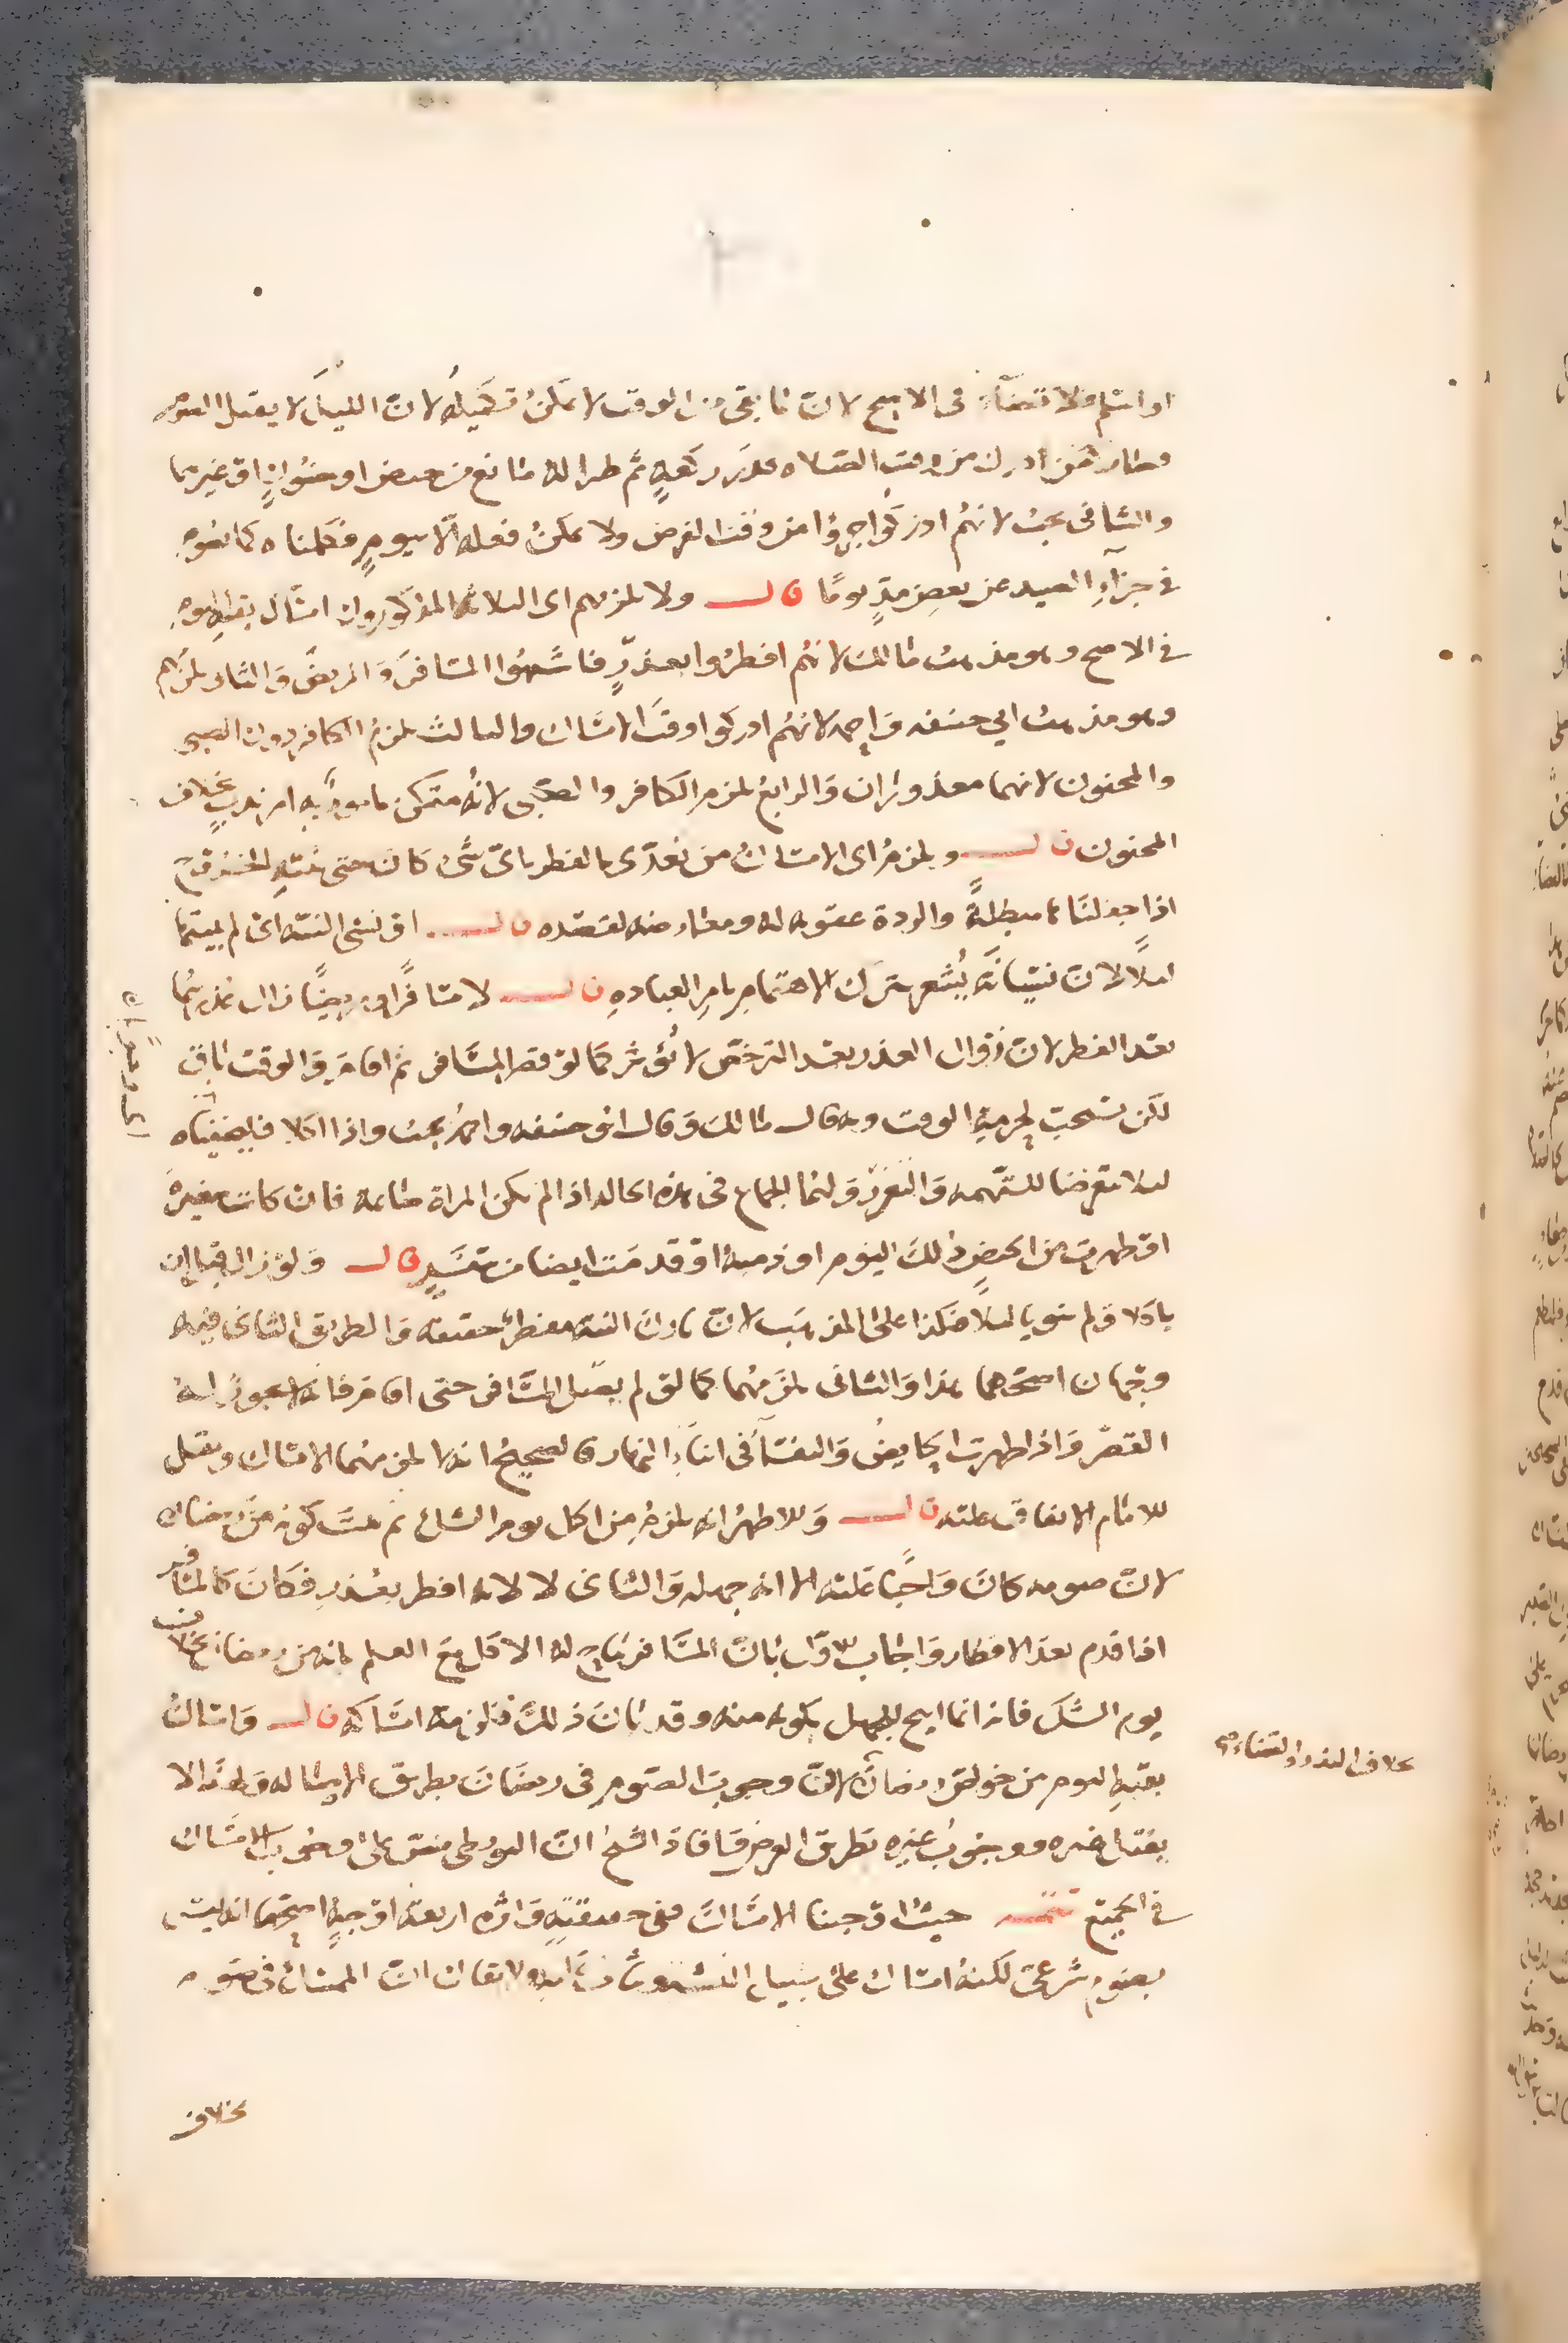 او اسلم فلا قضاء في الاصح لان ما بقي من الوقت لا يمكن تكميله لان الليل لا يقبل الصوم
وصار كمن ادرك من وقت الصلاه قدر ركعة ثم طرا له مانع من حيض او جنون او غيرهما
والثاني يجب لانهم ادركوا جزوا من وقت الفرض ولا يمكن فعله الا بيوم فكملناه كما نصوم
في جزآء الصيد عن بعض مد يوما قال ولا يلزمهم اى الثلاثة المذكورون امساك بقية اليوم
في الاصح وهو مذهب مالك لانهم افطروا بعذر فاشبهوا المسافر والمريض والثاني يلزمهم
وهو مذهب ابي حنيفه واحمد لانهم ادركوا وقت الامساك والثالث يلزم الكافر دون الصبي
والمجنون لانهما معذوران والرابع يلزم الكافر والصبي لانه متمكن مامور به امر ندب بخلاف
المجنون قال ويلزم اى الامساك من تعدى بالفطر باى شى كان حتى بنية الخروج
اذا جعلناها مبطلة والردة عقوبه له ومعارضه لقصده قال او نسي النية اى لم يبيتها
ليلا لان نسيانه يشعر بترك الاهتمام بامر العباده قال لا مسافرا او مريضا زال عذرهما
بعد الفطر لان زوال العذر بعد الترخص لا يؤثر كما لو قصر المسافر ثم اقام والوقت باق
لكن يستحب لحرمة الوقت وبه قال مالك وقال ابو حنيفه واحمد يجب واذا اكلا فليخفياه
ليلا يتعرضا للتهمه والتعزير ولهما الجماع في هذه الحاله اذا لم تكن المراة صائمة فان كانت صغيرة
او طهرت من الحيض ذلك اليوم او ذمية او قدمت ايضا من سفر قال ولو زال قبل ان
ياكلا ولم ينويا ليلا فكذا على المذهب لان تارك النية مفطر حقيقه والطريق الثاني فيه
وجهان اصحهما هذا والثاني يلزمهما كما لو لم يصل المسافر حتى اقام فانه لا يجوز له
القصر واذا طهرت الحايض والنفسآ في اثناء النهار فالصحيح انه لا يلزمهما الامساك ونقل
الامام الاتفاق عليه قال والاظهر انه يلزم من اكل يوم الشك ثم ثبت كونه من رمضان
لان صومه كان واجبا عليه الا انه جهله والثاني لا لانه افطر بعذر فكان كالمسافر
اذا قدم بعد الافطار واجاب الاول بان المسافر يباح له الاكل مع العلم بانه من رمضان بخلاف
يوم الشك فانه انما ابيح للجهل بكونه منه وقد بان ذلك فلزمه امساكه قال وامساك
بقية اليوم من خواص رمضان لان وجوب الصوم في رمضان بطريق الاصاله ولهذا لا
يقبل غيره ووجوب غيره بطريق العرض وافاد الشيخ ان البويطي نص على وجوب الامساك
في الجميع تتمه حيث اوجبنا الامساك ففي حقيقته واثره اربعة اوجه اصحها انه ليس
بصوم شرعي لكنه امساك على سبيل التشبه ولا يقال ان الممسك في صوم
بخلاف
بخلاف النذر والقضاء صح